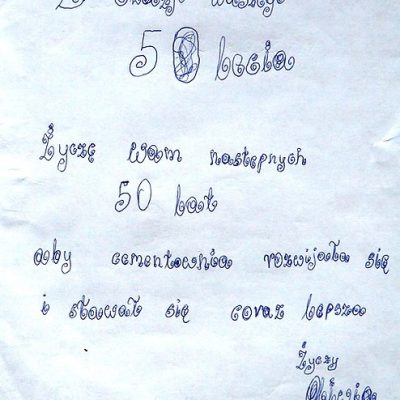 Z okazji waszego
50 lecia
Życzę wam nastepnych
50 lat
aby cementownia rozwijała się
i stawał się coraz lepsza
Życzy
Oliwia